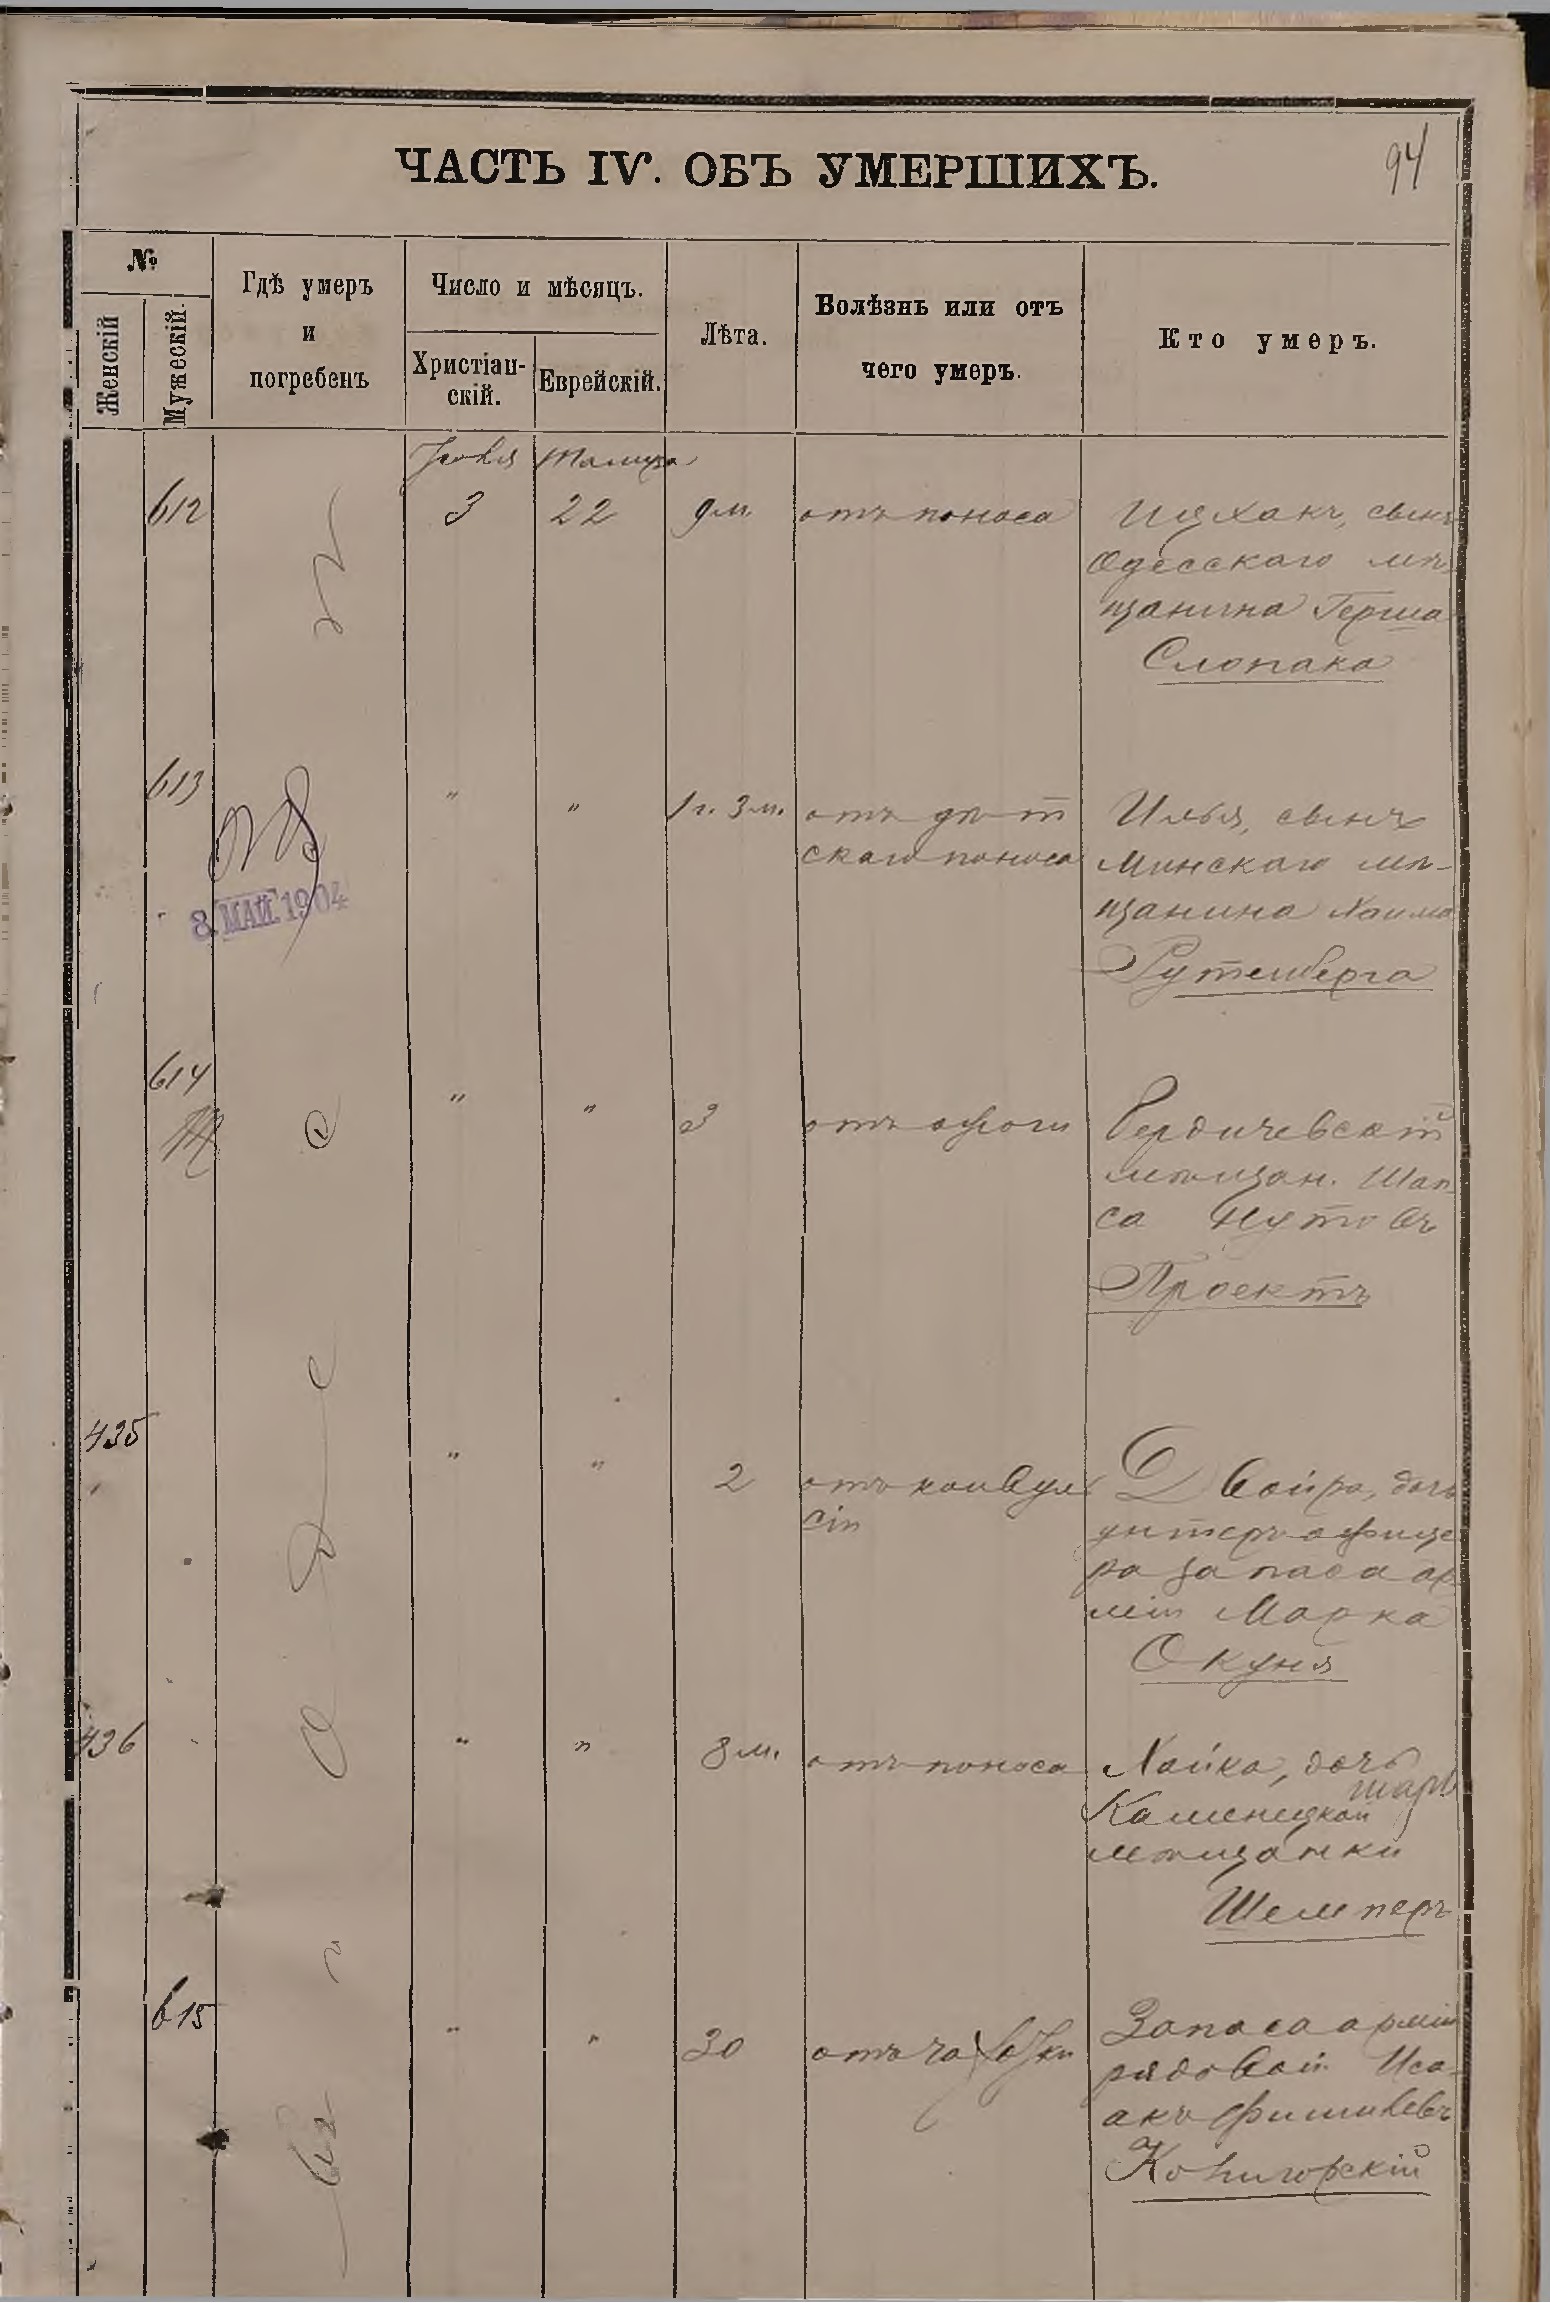 94
ЧАСТЬ IV. ОБЪ УМЕРШИХЪ.
№
Женскій
Мужескій.
Гдѣ умеръ
и
погребенъ
Число и мѣсяцъ.
Христіан-
скій.
Еврейскій.
Лѣта.
Болѣзнь или отъ
чего умеръ.
Кто умеръ.
Въ г. Одессѣ
Іюля
Тамуза
612
3
22
9 м.
отъ поноса
Ицхакъ, сынъ
Одесскаго мѣ-
щанина Герша
Слопака
613
8 МАЙ 1904
"
"
1 г. 3 м.
отъ дѣт
скаго поноса
Илья, сынъ
Минскаго мѣ-
щанина Хаима
Рутенберга
614
"
"
3
отъ
Бердичевскій
мѣщан. Шап-
са Нутовъ
Проектъ
435
"
"
2
отъ конвул
сіи
Двойра, дочь
унтеръ офице
ра запаса ар
міи Марка
Окуня
436
"
"
8 м.
отъ поноса
Хайка, дочь
Каменецкой
мѣщанки
Шемперъ
615
"
"
30
отъ чахотки
Запаса арміи
рядовой Иса-
акъ Фишилевъ